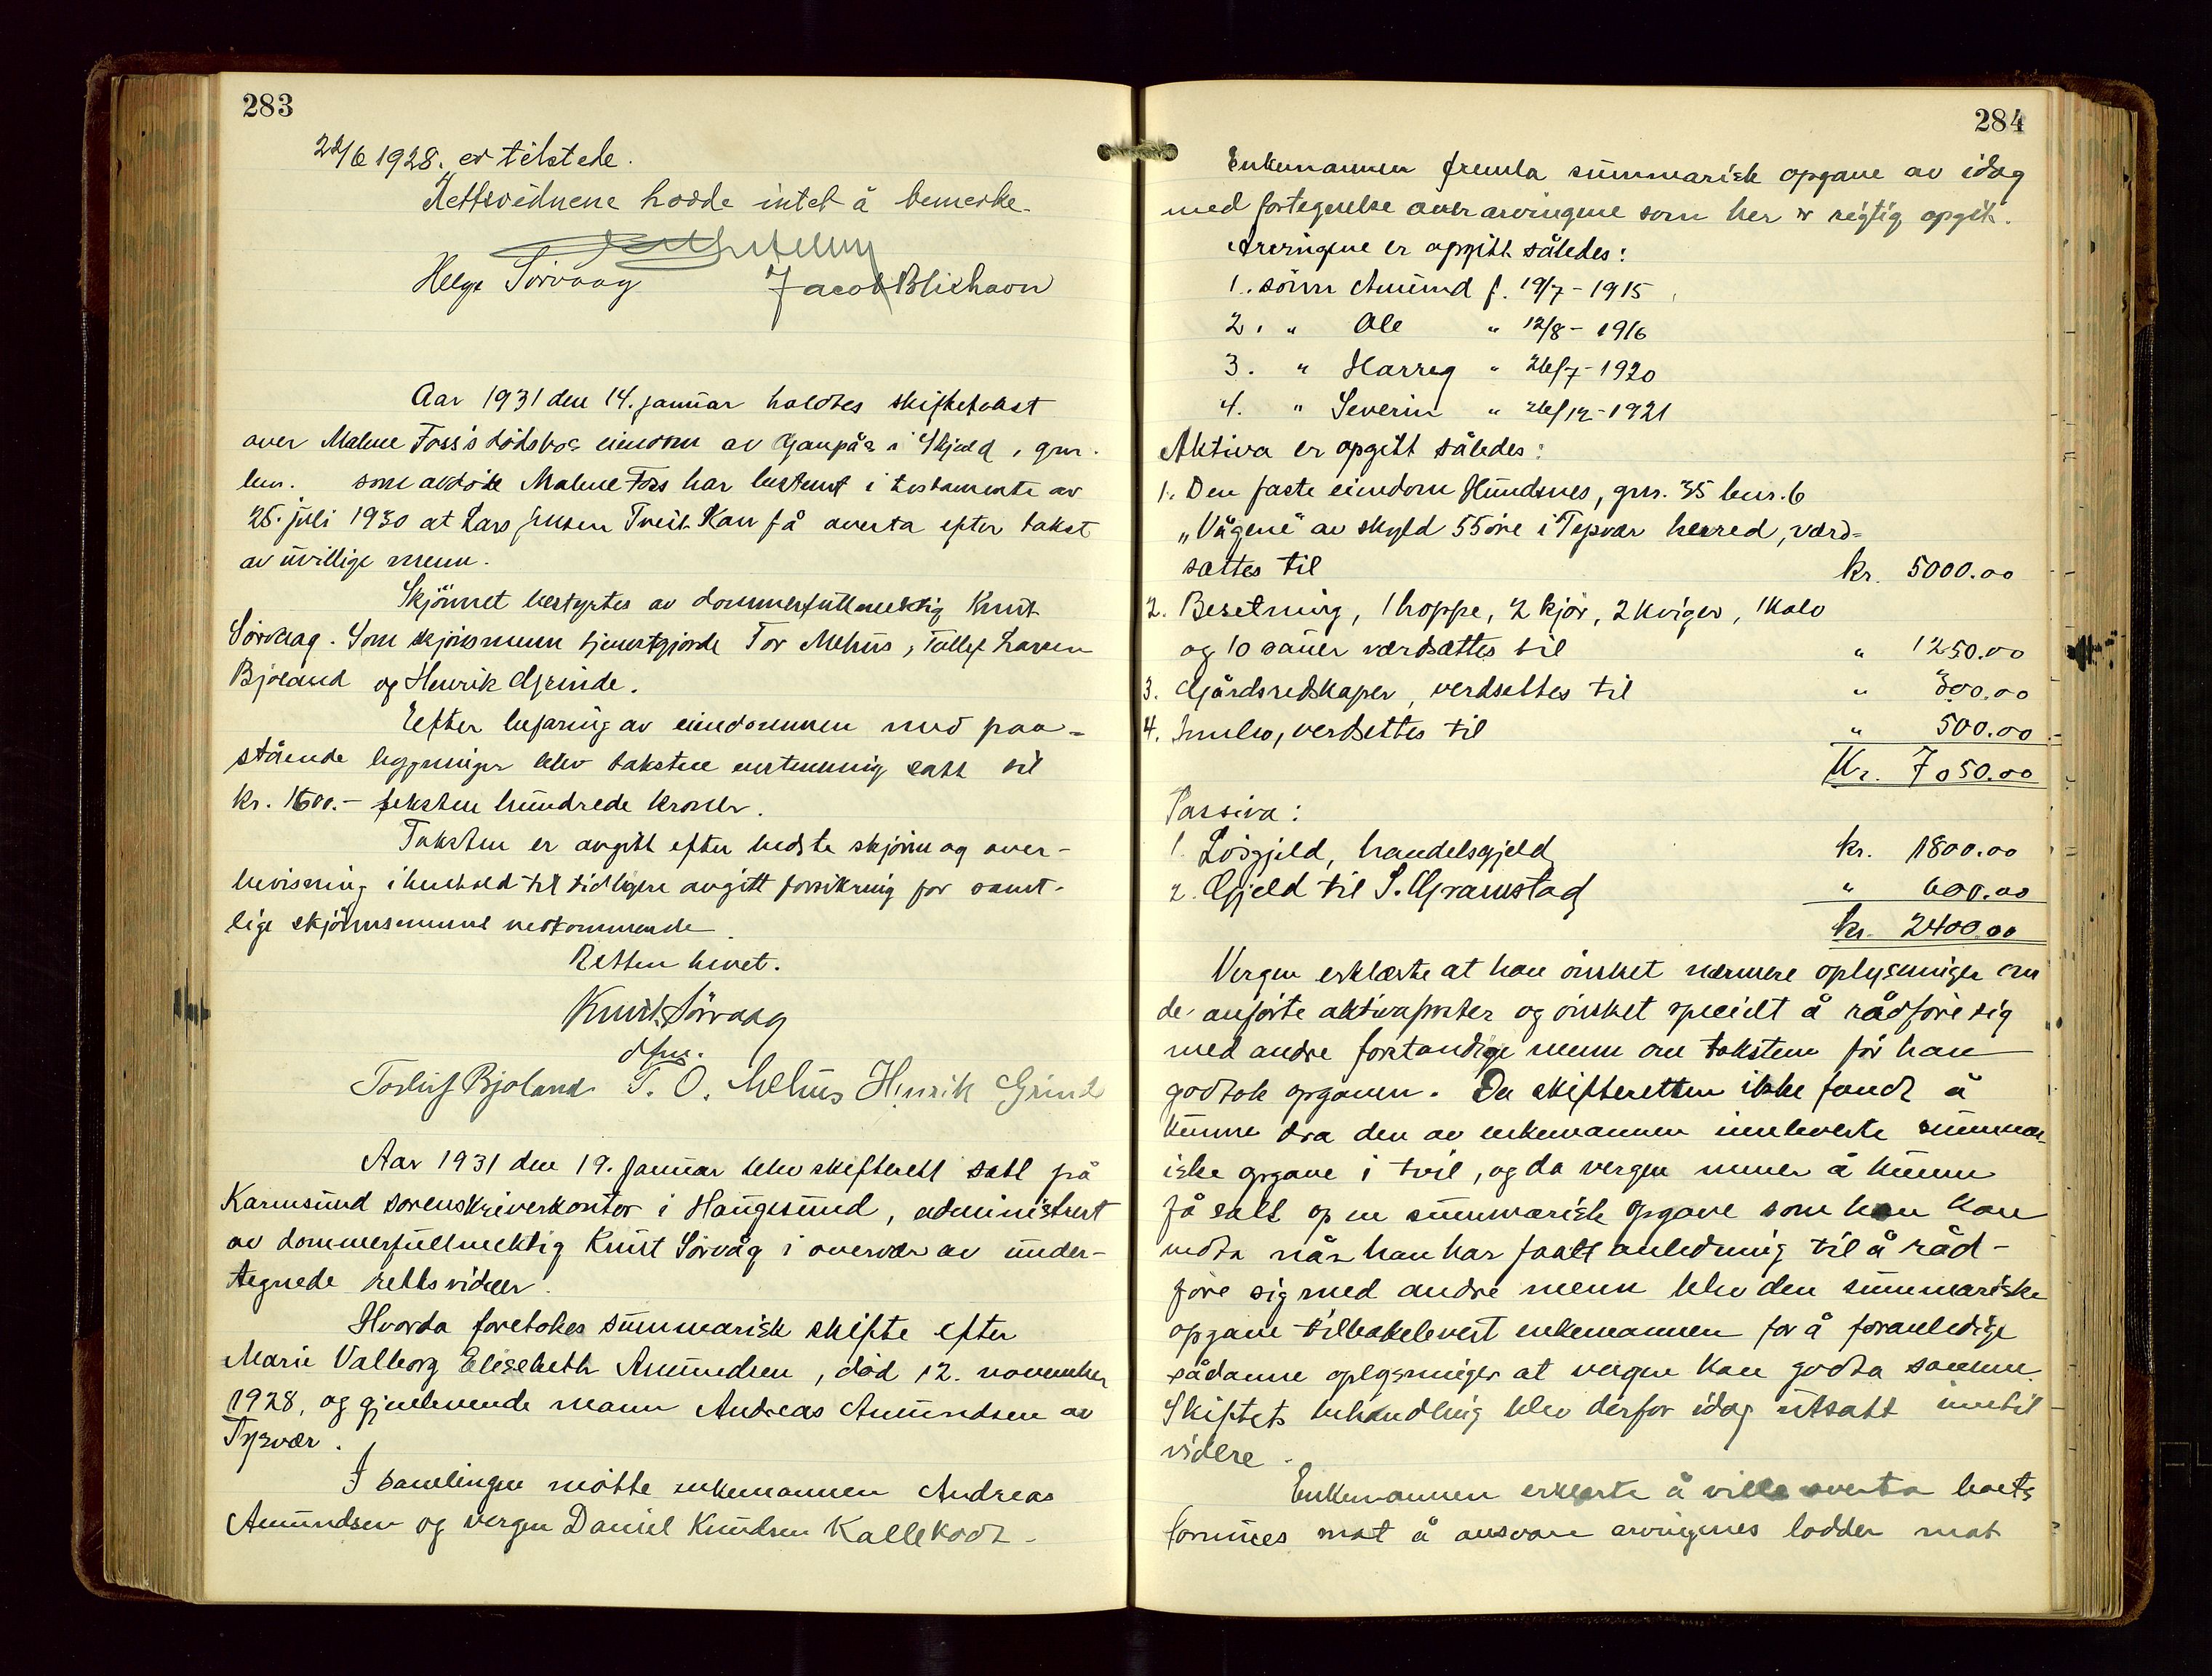 283
22/6 1928. er tilstede.
Rettsvidnene hadde intet å bemerke.
Helge Sørvaag Jacob Blikhavn
Aar 1931 den 14. januar holdtes skiftetakst
over Malene Foss's dødsbos eiendom av i Skjold, gnr.
bnr. som avdøde Malene Foss har bestemt i testamente av
25. juli 1930 at Lars Jensen Tveit kan få overta efter takst
av uvillige menn.
Skjønnet bestyrtes av dommerfullmektig Knut
Sørvaag. Som skjønsmenn tjenestgjorde Tor Mehus, Tollef Larsen
Bjoland og Henrik Grinde.
Efter befaring av eiendommen med paa-
stående bygninger blev taksten enstemmig satt til
kr. 1600.- seksten hundrede kroner.
Taksten er avgitt efter bedste skjønn og over-
bevisning i henhold til tidligere avgitt forsikring for samt-
lige skjønnsmenns vedkommende.
Retten hevet.
Knut Sørvaag
dfm.
Torleif Bjoland T. O. Mehus Henrik Grinde
Aar 1931 den 19. januar blev skifterett satt på
Karmsund sorenskriverkontor i Haugesund, administrert
av dommerfullmektig Knut Sørvåg i overvær av under-
tegnede rettsvidner.
Hvorda foretokes summarisk skifte efter
Marie Valborg Elisebeth Amundsen, død 12. november
1928, og gjenlevende mann Andreas Amundsen av
Tysvær.
I samlingen møtte enkemannen Andreas
Amundsen og vergen Daniel Knudsen Kallekodt.
284
Enkemannen fremla summarisk opgave av idag
med fortegnelse over arvingene som her er rigtig opgit.
Arvingene er opgitt således:
1. sønn Amund f. 19/7 - 1915
2. " Ole " 12/8 - 1916
3. " Harreg " 26/7 - 1920
4. " Severin " 26/12 - 1921
Aktiva er opgitt således:
1. Den faste eiendom Hundsnes, gnr. 35 bnr. 6
"Vågene" av skyld 55 øre i Tysvær herred, værd-
settes til kr. 5000.00
2. Besetning, 1 hoppe, 2 kjør, 2 kviger, 1 kalv
og 10 sauer værdsættes til " 1250.00
3. Gårdsredskaper, verdsettes til " 300.00
4. Innbo, verdsettes til " 500.00
Kr. 7050.00
Passiva:
1. Løsgjeld, handelsgjeld kr. 1800.00
2. Gjeld til S. Gramstad " 600.00
kr. 2400.00
Vergen erklærte at han ønsket nærmere oplysninger om
de anførte aktivaposter og ønsket specielt å rådføre sig
med andre forstandige menn om taksten før han
godtok opgaven. Da skifteretten ikke fandt å
kunne dra den av enkemannen innleverte summar-
iske opgave i tvil, og da vergen mener å kunne
få satt op en summarisk opgave som han kan
vedta når han har faatt anledning til å råd-
føre sig med andre menn blev den summariske
opgave tilbakelevert enkemannen for å foranledige
sådanne oplysninger at vergen kan godta samme.
Skiftets behandling blev derfor idag utsatt inntil
videre.
Enkemannen erklærte å ville overta boets
formues mot å ansvare arvingenes lodder mot